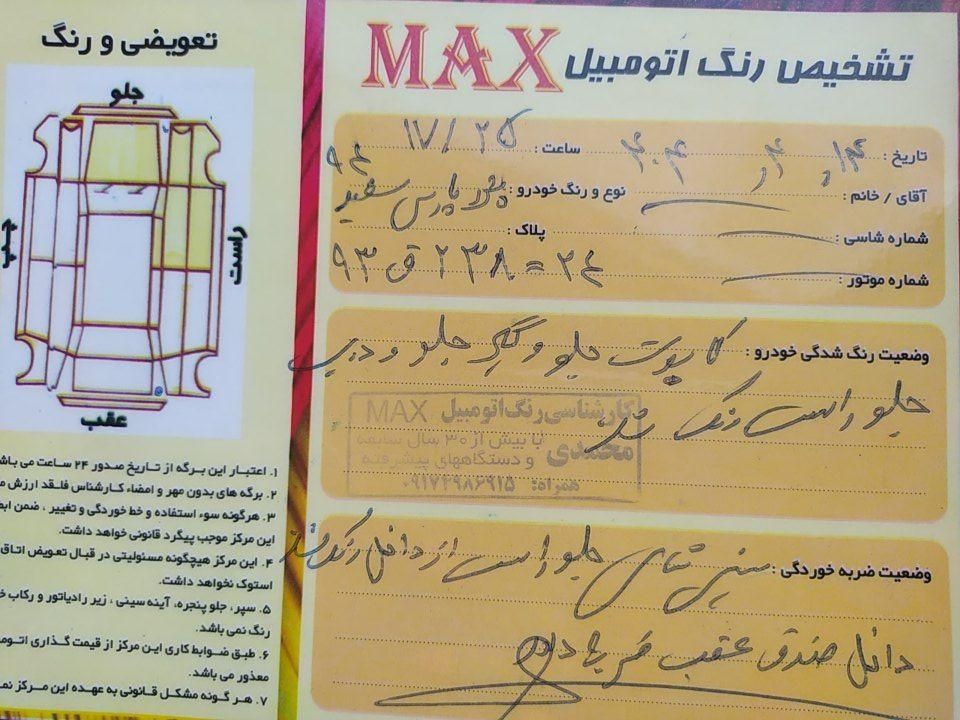 تشخیص رنگ اتومبیل MAX
تاریخ : ۱۴ , ۴ , ۴۰۴ ساعت : ۱۷/۲۵
آقای / خانم : نوع و رنگ خودرو : پژو پارس سفید ۹۴
شماره شاسی : پلاک :
شماره موتور : ۲۴ = ۲۳۸ ق ۹۳
وضعیت رنگ شدگی خودرو : کاپوت جلو و گلگیر جلو و درب
جلو راست رنگ شد
کارشناسی رنگ اتومبیل MAX
محمدی
با بیش از ۳۰ سال سابقه
و دستگاههای پیشرفته
همراه: ۰۹۱۷۲۹۸۶۹۱۵
وضعیت ضربه خوردگی : سینی شاسی جلو راست از داخل رنگ شد
داخل صندوق عقب ضربه دارد
تعویضی و رنگ
جلو
چپ
راست
عقب
۱. اعتبار این برگه از تاریخ صدور ۲۴ ساعت می باش
۲. برگه های بدون مهر و امضاء کارشناس فاقد ارزش م
۳. هرگونه سوء استفاده و خط خوردگی و تغییر ، ضمن ابط
این مرکز موجب پیگرد قانونی خواهد داشت.
۴. این مرکز هیچگونه مسئولیتی در قبال تعویض اتاق
استوک نخواهد داشت.
۵. سپر، جلو پنجره، آینه سینی ، زیر رادیاتور و رکاب خ
رنگ نمی باشد.
۶. طبق ضوابط کاری این مرکز از قیمت گذاری اتوم
معذور می باشد.
۷. هر گونه مشکل قانونی به عهده این مرکز نم